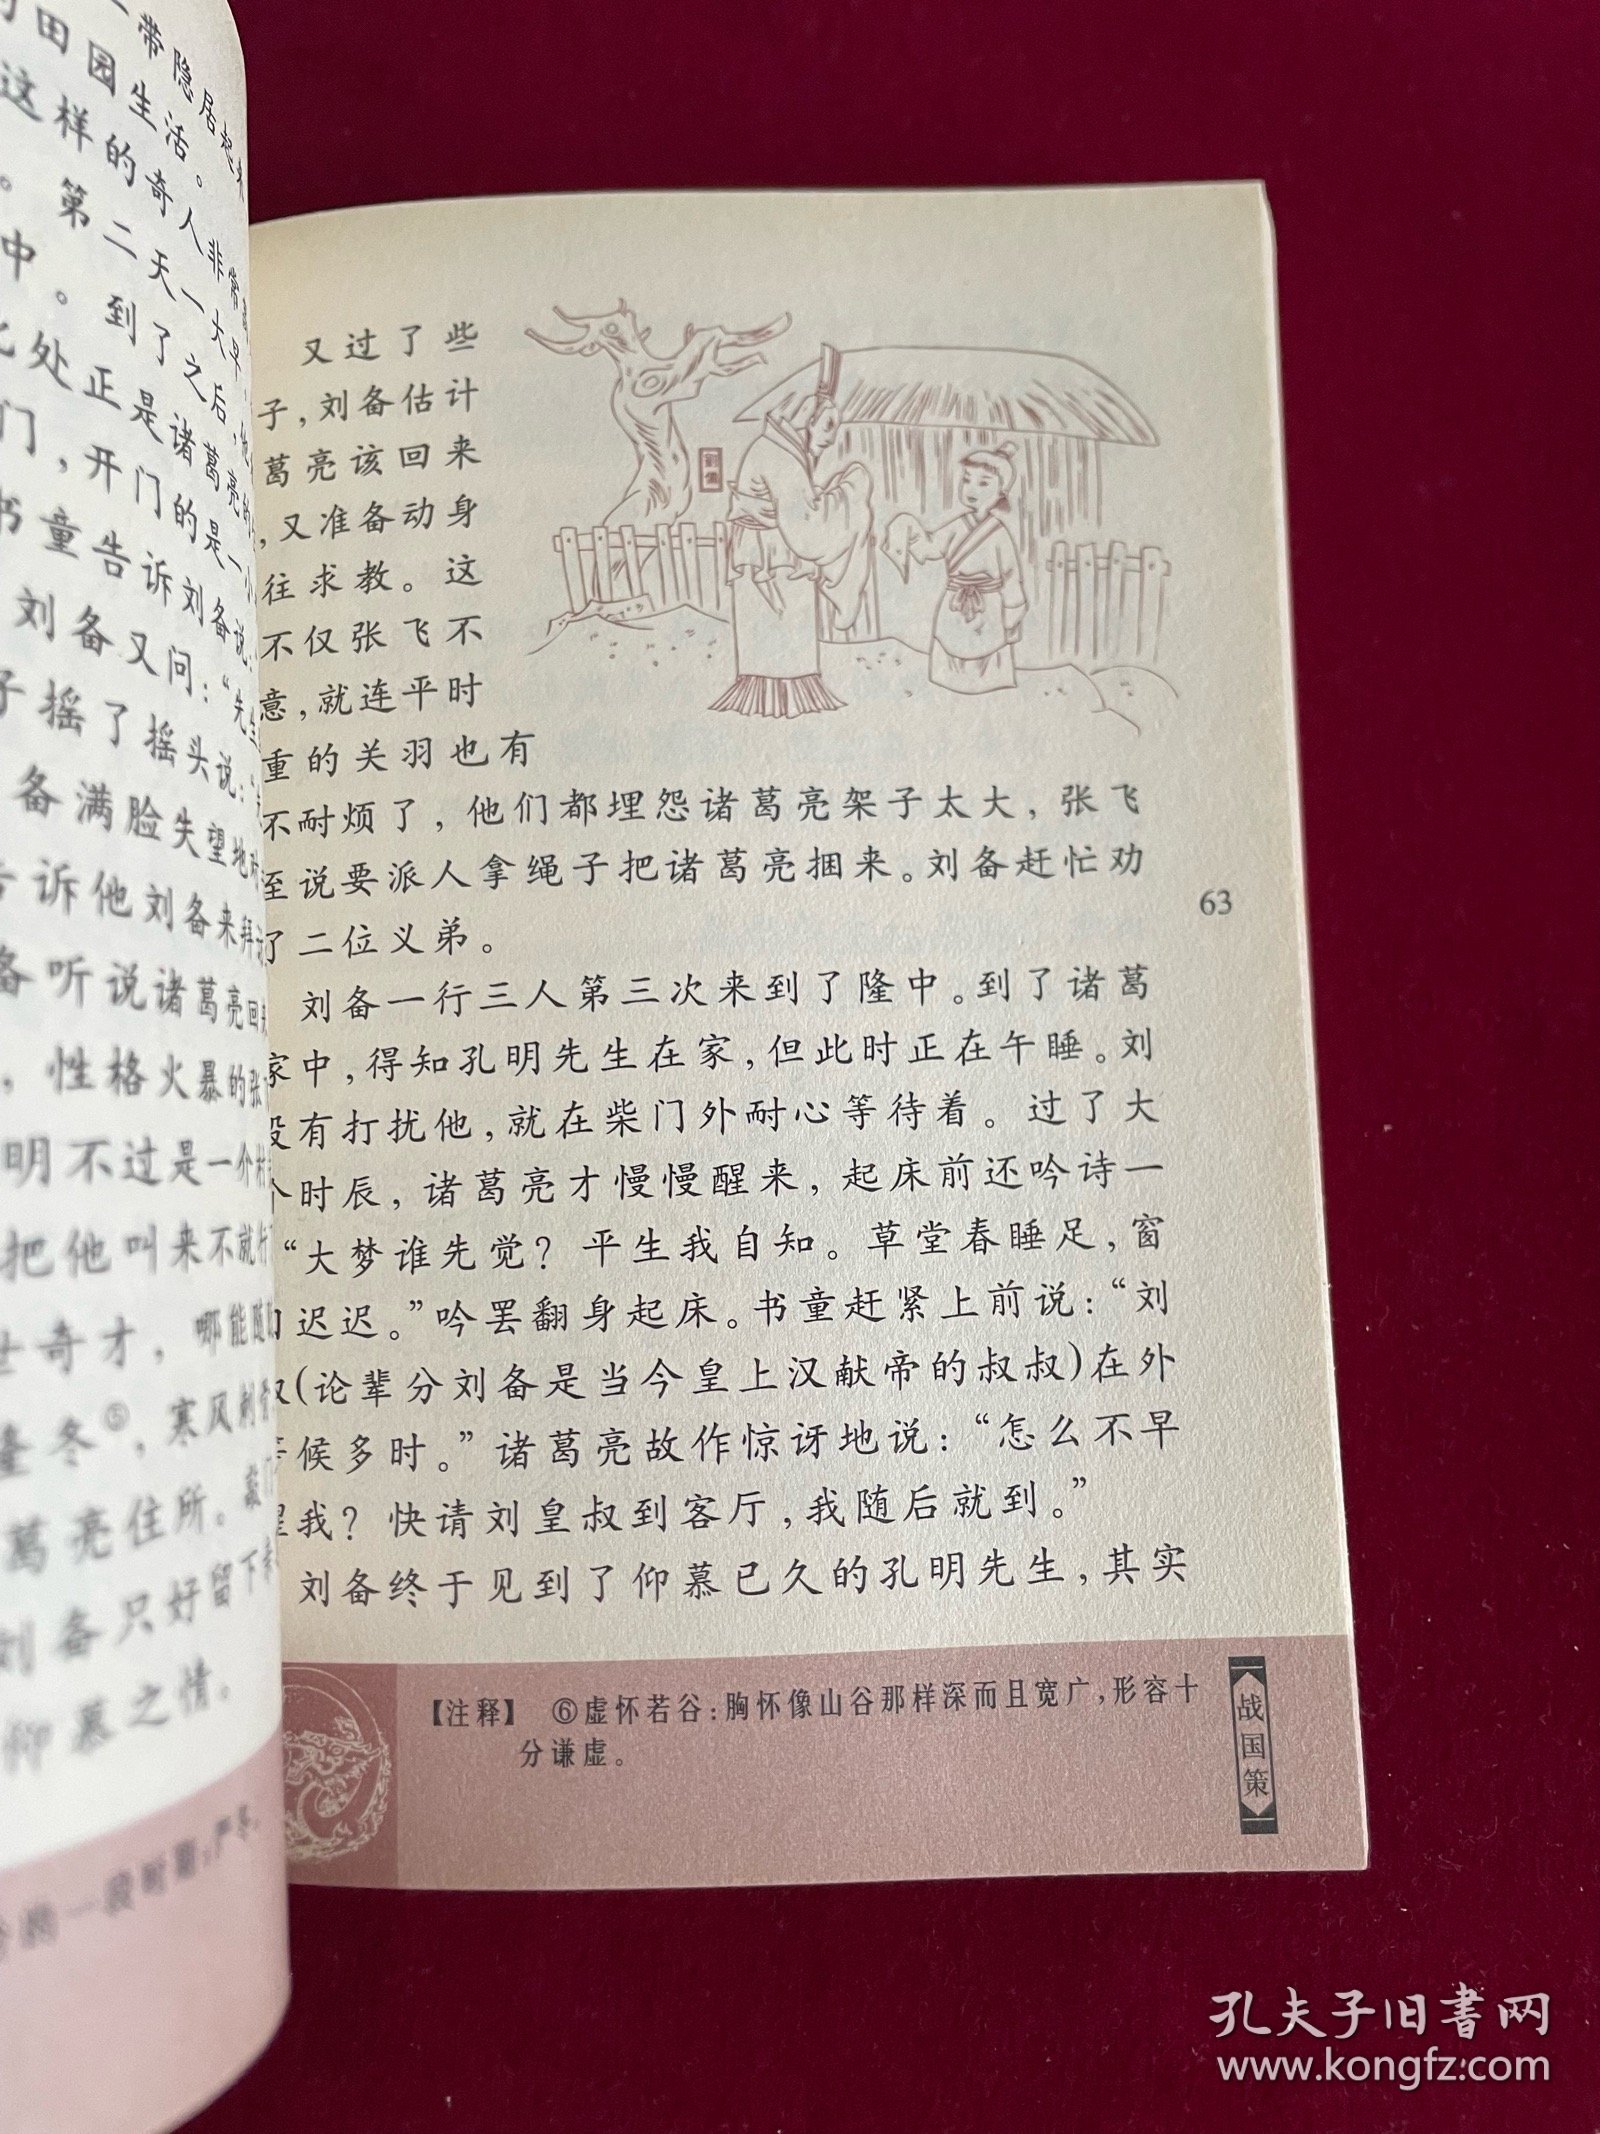 带隐居起来
田园生活。
这样的奇人非常
。第二天一大早
中。到了之后,他
处正是诸葛亮的
门,开门的是一小
书童告诉刘备说:
刘备又问:“先生
子摇了摇头说:“
备满脸失望地对
告诉他刘备来拜访
备听说诸葛亮回来
,性格火暴的张飞
明不过是一个村
把他叫来不就行
世奇才,哪能随
隆冬⑤,寒风刺骨
葛亮住所。敲门
刘备只好留下
仰慕之情。
的一段时期;严冬。
又过了些
子,刘备估计
葛亮该回来
,又准备动身
往求教。这
不仅张飞不
意,就连平时
重的关羽也有
不耐烦了,他们都埋怨诸葛亮架子太大,张飞
至说要派人拿绳子把诸葛亮捆来。刘备赶忙劝
了二位义弟。
刘备一行三人第三次来到了隆中。到了诸葛
家中,得知孔明先生在家,但此时正在午睡。刘
没有打扰他,就在柴门外耐心等待着。过了大
个时辰,诸葛亮才慢慢醒来,起床前还吟诗一
“大梦谁先觉?平生我自知。草堂春睡足,窗
迟迟。”吟罢翻身起床。书童赶紧上前说:“刘
叔(论辈分刘备是当今皇上汉献帝的叔叔)在外
等候多时。”诸葛亮故作惊讶地说:“怎么不早
醒我?快请刘皇叔到客厅,我随后就到。”
刘备终于见到了仰慕已久的孔明先生,其实
63
【注释】 ⑥虚怀若谷:胸怀像山谷那样深而且宽广,形容十
分谦虚。
战国策
孔夫子旧书网
www.kongfz.com